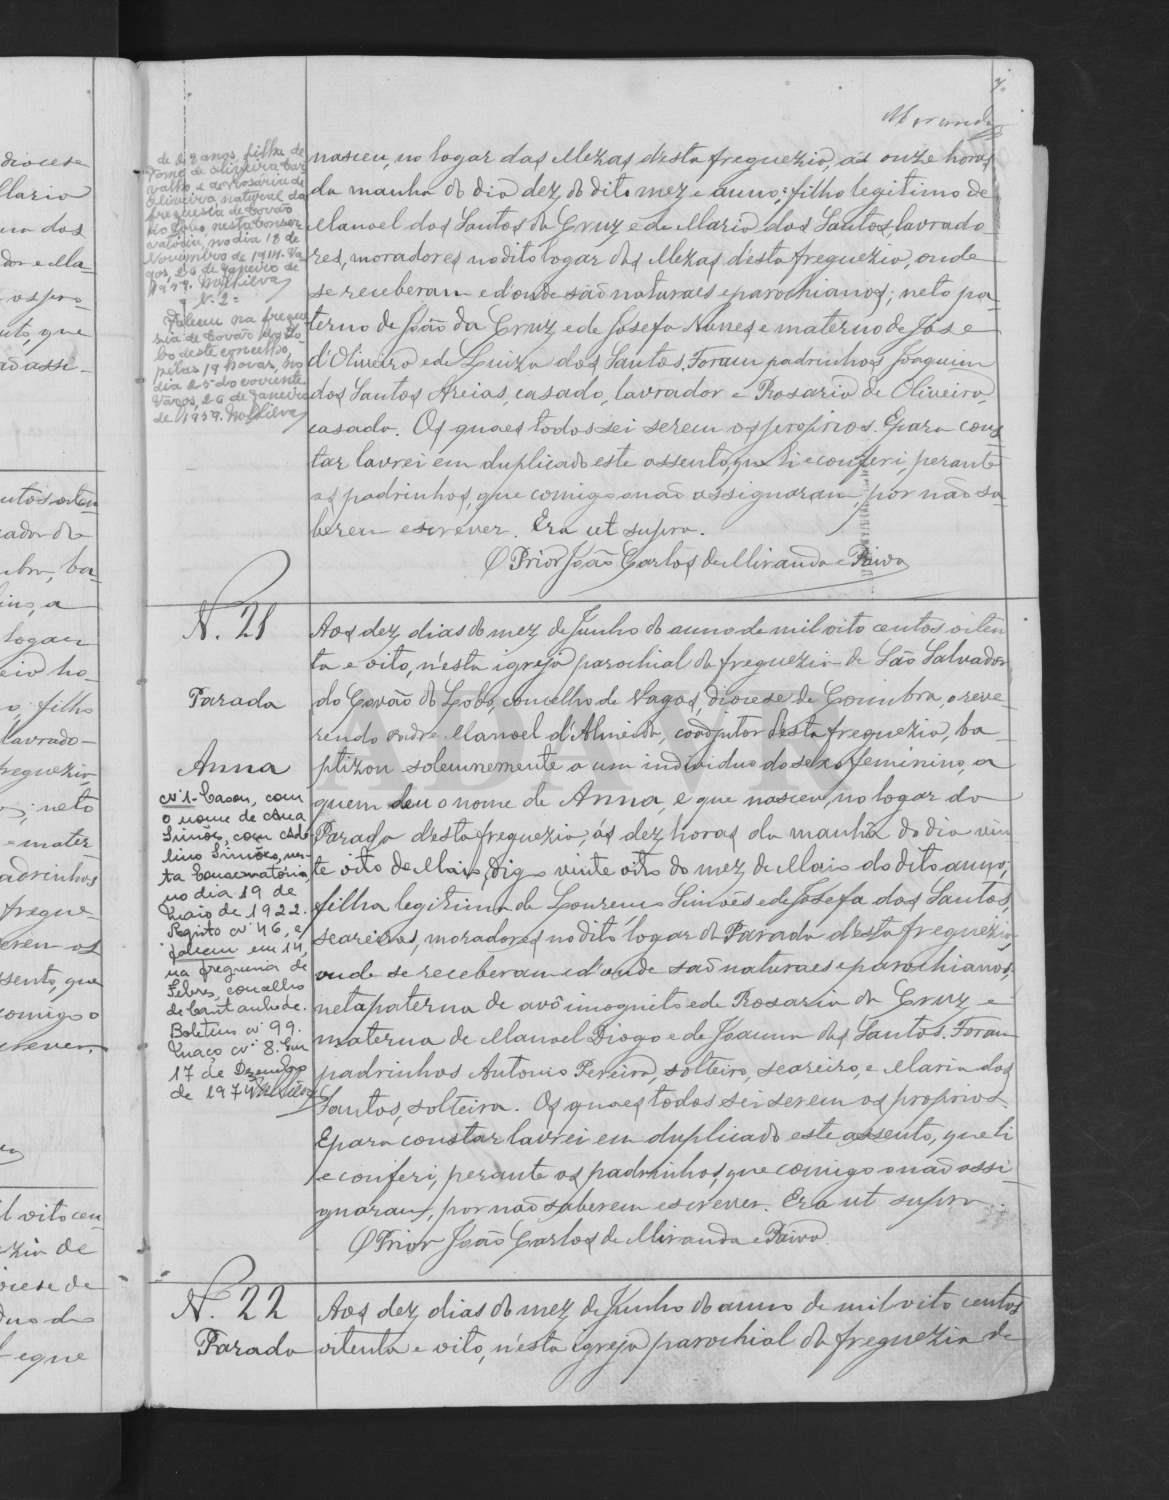 7.
Miranda
de 28 annos, filha de
Tomé de Oliveira Car
valho, e de Rosaria de
Oliveira, natural da
freguesia de Covão
do Lobo, nesta Conser
vatória, no dia 18 de
Novembro de 1914. Va
gos, 26 de Janeiro de
1959.
N. 2 =
Faleceu na fregue
sia de Covão do Lo
bo deste concelho,
pelas 19 horas, no
dia 25 do corrente
Vagos, 26 de Janeiro
de 1959.
nasceu, no logar das Mezas d'esta freguezia, ás onze horas
da manhã do dia dez do dito mez e anno; filho legitimo de
Manoel dos Santos da Cruz e de Maria dos Santos, lavrado-
res, moradores no dito logar das Mezas d'esta freguezia, onde
se receberam e d'onde são naturaes e parochianos; neto pa-
terno de João da Cruz e de Josefa Nunes e materno de José
d'Oliveira e de Luiza dos Santos. Foram padrinhos Joaquim
dos Santos Areias, casado, lavrador e Rosaria de Oliveira,
casada. Os quaes todos sei serem os proprios. E para cons-
tar lavrei em duplicado este assento, que li e conferi, perante
os padrinhos, que comigo o não assignaram, por não sa-
berem escrever. Era ut supra.
O Prior João Carlos de Miranda e Paiva
N. 21
Parada
Anna
Nº 1 - Casou, com
o nome de Ana
Simões, com Ade
lino Simões, nes-
ta Conservatória,
no dia 19 de
Maio de 1922.
Registo nº 46, e
faleceu em 14,
na freguesia de
Febres, concelho
de Cantanhede.
Boletim nº 99.
Maço nº 8. Em
17 de Dezembro
de 1974
Aos dez dias do mez de Junho do anno de mil oito centos oiten
ta e oito, n'esta igreja parochial da freguezia de São Salvador
do Covão do Lobo, concelho de Vagos, diocese de Coimbra, o reve-
rendo Padre Manoel d'Almeida, coadjutor d'esta freguezia, ba-
ptizou solemnemente a um individuo do sexo feminino, a
quem deu o nome de Anna, e que nasceu, no logar da
Parada d'esta freguezia, ás dez horas da manhã do dia vin
te oito de Maio, digo vinte oito do mez de Maio do dito anno;
filha legitima de Lourenço Simões e de Josefa dos Santos,
seareiros, moradores no dito logar da Parada d'esta freguezia,
onde se receberam e d'onde são naturaes e parochianos;
neta paterna de avô incognito e de Rosaria da Cruz e
materna de Manoel Diogo e de Joanna dos Santos. Foram
padrinhos Antonio Pereira, solteiro, seareiro, e Maria dos
Santos, solteira. Os quaes todos sei serem os proprios.
E para constar lavrei em duplicado este assento, que li
e conferi, perante os padrinhos, que comigo o não assi
gnaram, por não saberem escrever. Era ut supra.
O Prior João Carlos de Miranda e Paiva
N. 22
Parada
Aos dez dias do mez de Junho do anno de mil oito centos
oitenta e oito, n'esta igreja parochial da freguezia de